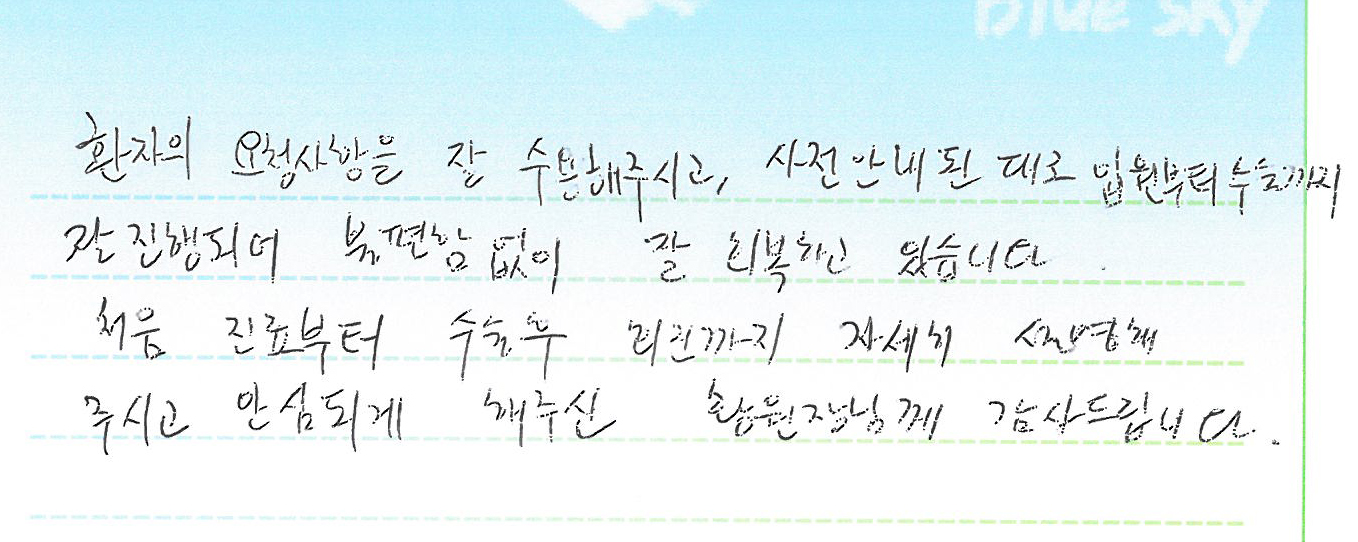 Blue Sky
환자의 요청사항을 잘 수용해주시고, 사전안내된 대로 입원부터 수술까지
잘 진행되어 불편함 없이 잘 회복하고 있습니다.
처음 진료부터 수술후 회진까지 자세히 설명해
주시고 안심되게 해주신 황원장님께 감사드립니다.